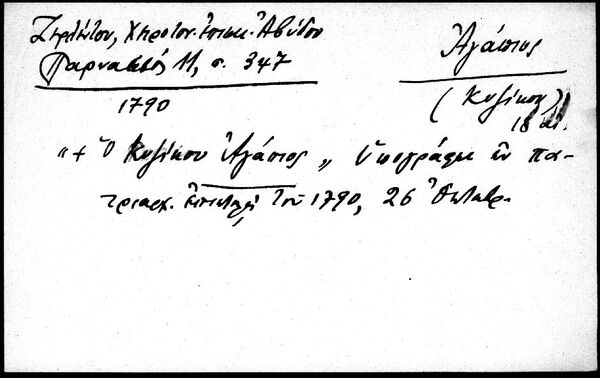 Ζερλέντου, Χειροτον. ἐπισκ. Ἀβύδου
Παρνασσός 11, σ. 347
1790
Ἀγάπιος
(Κυζίκου)
18 αἰ.
"+ Ὁ Κυζίκου Ἀγάπιος„ Ὑπογράφει ἐν πα-
τριαρχ. ἐπιστολῇ τοῦ 1790, 26 Ὀκτωβρ.